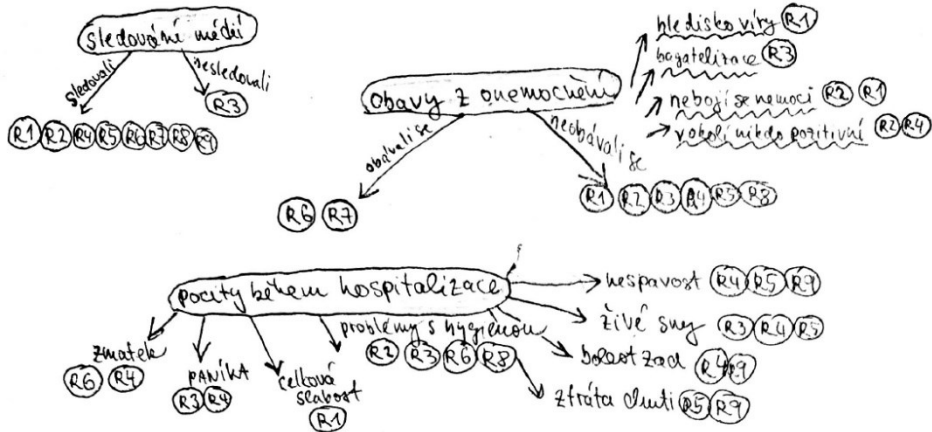 sledování médií
sledovali
nesledovali
R3
R1 R2 R4 R5 R6 R7 R8 R9
obavy z onemocnění
hledisko víry R1
bagatelizace R3
nebojí se nemoci R2 R1
v okolí nikdo pozitivní R2 R4
obávali se
neobávali se
R6 R7
R1 R2 R3 R4 R5 R8
pocity během hospitalizace
nespavost R4 R5 R9
živé sny R3 R4 R5
bolest zad R4 R9
ztráta chuti R5 R9
problémy s hygienou
R2 R3 R6 R8
zmatek
R6 R4
PANIKA
R3 R4
celková
slabost
R1